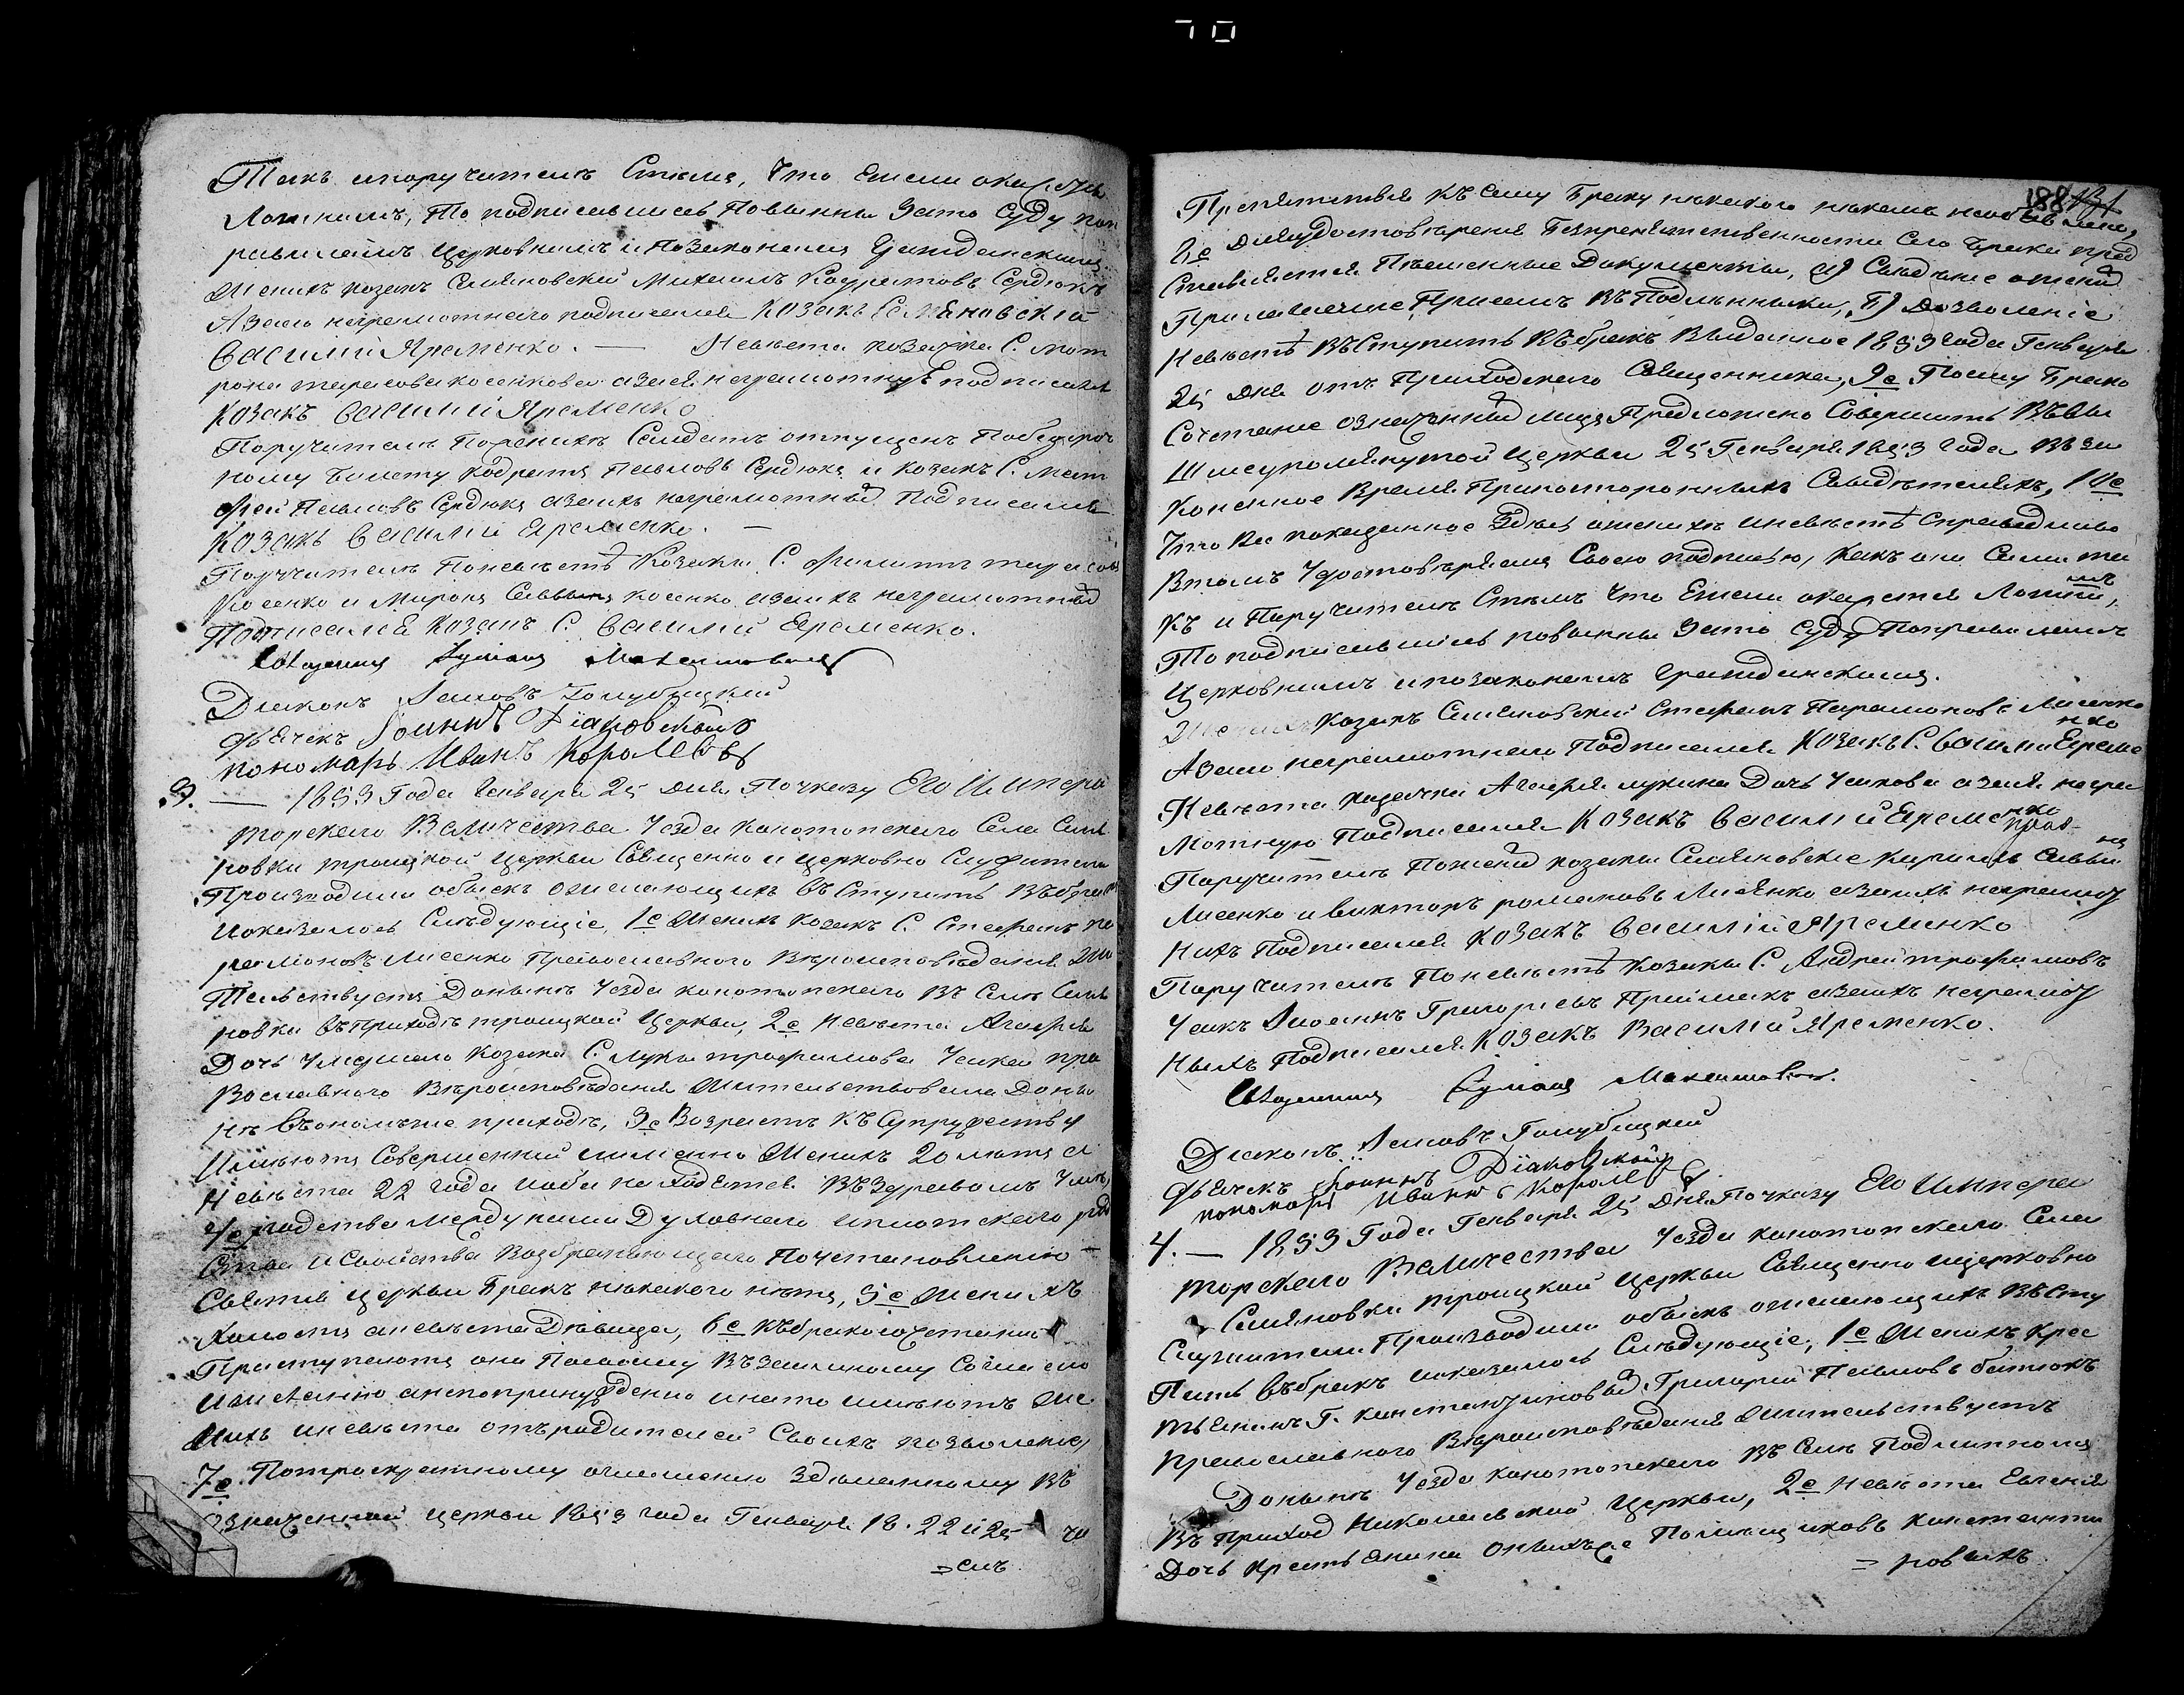 70
Такъ ипоручители Стѣмъ, Что Ежели окажется
Ложнымъ, То подписавшиесь Повинны Зато Суду поп
равиламъ Церковнымъ и Позаконамъ Гражданскимъ.
Женихъ козакъ Семяновский Михаилъ Кодратовъ Сердюкъ
Азаго неграмотнаго подписался Козакъ Семяновскій
Василий Яременко. — Невѣста козачка С. мот
рона тарасова косенкова азаея неграмотную подписался
Козакъ Василий Яременко
Поручители Поженихѣ Солдатъ отпущенъ
ному билету кодратъ Павловъ Сердюкъ и козакъ С. мат
фей Павловъ Сердюкъ азаихъ неграмотныхъ Подписался
Козакъ Василий Яременко. —
Поручители Поневѣстѣ Козаки С. Филипъ тарасовъ
Косенко и Миронъ Саввинъ косенко азаихъ неграмотныхъ
Подписался Козакъ С. Василий Еременко.
Священникъ Максимовичъ
Диаконъ Іаковъ Голубицкий
дьячекъ Іоаннъ Діаковский
пономарь Иванъ Королевъ
3. — 1853 Года Генваря 25 дня Поуказу Его Импера
торскаго Величества Уезда Конотопскаго Села Семя
новки троицкой Церкви Священно и Церковно Служители
Производили обыскъ ожелающихъ въ Ступить Въбракъ
иоказалось Слѣдующіе, 1е Женихъ козакъ С. Стефанъ па
рамоновъ лисенко Православного Вероисповѣдания Жи
Тельствуетъ Донынѣ Уезда конотопскаго Въ Селѣ Семя
новки въ Приходѣ троицкой Церкви, 2е Невѣста Агафия
Дочь Умершаго Козака С. луки трофимова Чайки пра
Вославного Вѣроисповѣдания Жительствовала Доны
нѣ Въономъже приходѣ, 3е Возрастъ КъСупружеству
Имѣютъ Совершенний имянно Женихъ 20 летъ а
Невѣста 22 года иоба находятся Въздравомъ Умѣ,
4е родства Междуними Духовнаго иплотскаго род
Ства и Свойства Возбраняющаго Поустановлению
Святия Церкви Бракъ никакого нетъ, 5е Женихъ
Холостъ аневѣста Дѣвица, 6е Къбракосочетанию
Приступаютъ они Посвоему Взаимному Согласию
ижеланию анепопринуждению инато имѣютъ Же
нихъ иневѣста отъродителей Своихъ позволение,
7е Потроекратному оглашению Здѣланному Въ
Означенной Церкви 1853 года Генваря 18. 22 и 25 чи
= слъ
188 131
Препятствия Къ Сему Браку никакого никемъ необъявлено,
8е Дляудостовѣрения Безпрепятственности Сего Брака пред
Ставляются Писменные Документы, а) Свѣдѣние оженихѣ
Прилагаемые Присемъ Въ Подлиннике, б) Дозволеніе
Невѣстѣ ВъСтупить Въбракъ Выданное 1853 года Генваря
25 дня отъ Приходскаго Священника, 9е Посему Брако
Сочетание означенныхъ лицъ Предложено Совершить Въвы
Шеупомянутой Церкви 25 Генваря 1853 года въза
конное Время Припосторонныхъ Свидѣтеляхъ, 10е
Что Все показанное Здѣсь оженихѣ иневѣстѣ Справедливо
Втомъ Удостовѣряютъ Своею подписью, какъони Сами та
Къ и Поручители Стѣмъ Что Ежели окажется Ложнымъ,
То подписавшиесь повинны Зато Суду Поправиламъ
Церковнымъ ипозаконамъ Гражданскимъ.
Женихъ Козакъ Семяновский Стефанъ Парамоновъ Лисенко
Азаго неграмотнаго Подписался Козакъ С. Василий Еременко
Невѣста казачка Агафия лукина Дочь Чайкова азаея негра
мотную Подписался Козакъ Василий Еременко
Поручители Поженихѣ козаки Семяновские Кирилъ Саввинъ
Лисенко ивикторъ романовъ Лисенко азаихъ неграмот
ныхъ Подписался Козакъ Василий Яременко
Поручители Поневѣстѣ Козаки С. Андрей трофимовъ
Чайкъ Иоаннъ Григориевъ Приймакъ азаихъ неграмот
ныхъ Подписался Козакъ Василий Яременко.
Священникъ Максимовичъ.
Диаконъ Іаковъ Голубицкий
дьячекъ Іоаннъ Діаковский
пономарь Иванъ Королевъ
4. — 1853 Года Генваря 25 Дня Поуказу Его Импера
торскаго Величества Уезда конотопскаго Села
Семяновки троицкой Церкви Священно ицерковно
Служители Производили обыскъ ожелающихъ ВъСту
Пить Въбракъ иоказалось Слѣдующіе, 1е Женихъ Крес
тьянинъ Г. константиновыхъ Григорий Павловъ
православного Вѣроисповѣдания Жительствуетъ
Донынѣ Уезда конотопскаго Въ Селѣ Подлипномъ
Въ Приход Николаевский Церкви, 2е Невѣста Евгения
Дочь Крестьянина Онихъже Помещиковъ Константи
= новыхъ